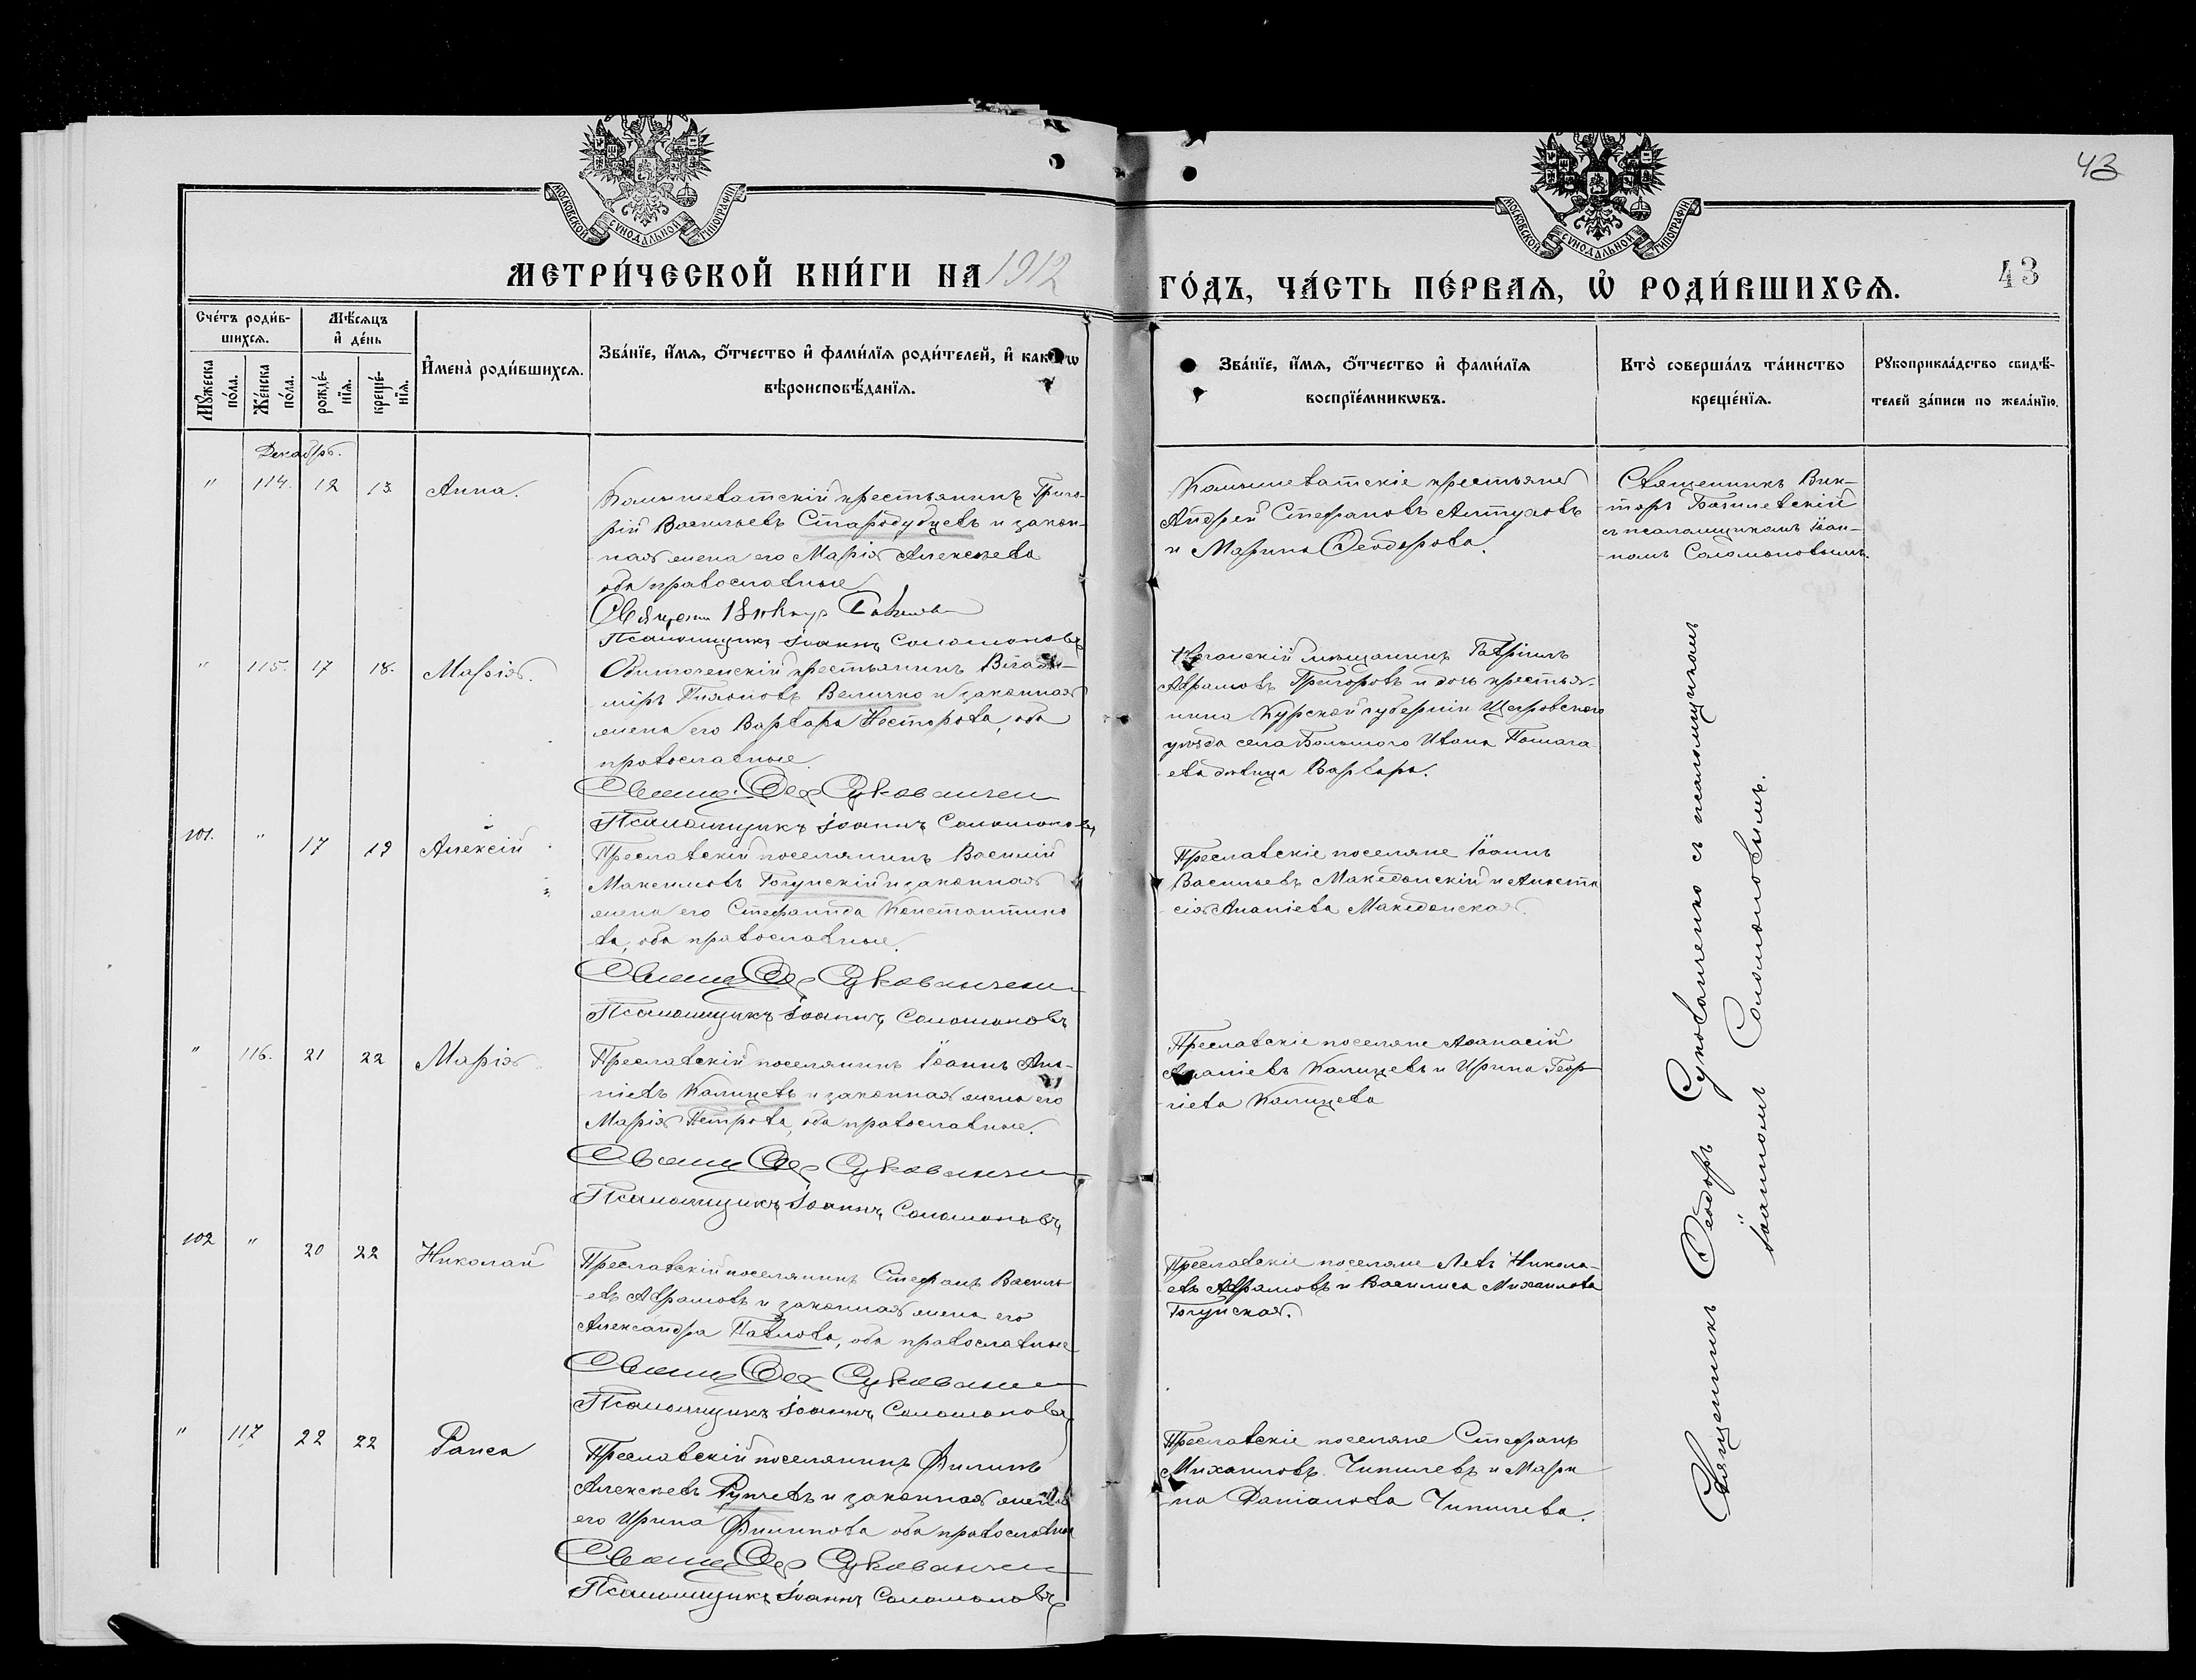 43
МОСКОВСКОЙ СѴНОДАЛЬНОЙ ТИПОГРАФІИ
МОСКОВСКОЙ СѴНОДАЛЬНОЙ ТИПОГРАФІИ
МЕТРИ́ЧЕСКОЙ КНИ́ГИ НА 1912
ГО́ДЪ, ЧА́СТЬ ПЕ́РВАѦ, Ѡ҆ РОДИ́ВШИХСѦ.
43
Сче́тъ роди́в-
шихсѧ.
Мѣ́сѧцъ
и҆ де́нь
Мꙋ́жеска
по́ла.
Же́нска
по́ла.
рожде́-
нїѧ.
креще́-
нїѧ.
И҆мена̀ роди́вшихсѧ.
Зва́нїе, и҆́мѧ, ѻ҆́тчество и҆ фами́лїѧ роди́телей, и҆ какѡ́
вѣроисповѣ́данїѧ.
Зва́нїе, и҆́мѧ, ѻ҆́тчество и҆ фами́лїѧ
воспрїе́мникѡвъ.
Кто̀ соверша́лъ та́инство
креще́нїѧ.
Рꙋкоприкла́дство свидѣ́-
телей за́писи по жела́нїю.
Декабрь.
" 114. 12 13. Анна.
Камышеватскій крестьянинъ Григо-
рій Васильевъ Стародубцевъ и закон-
ная жена его Марія Алексѣева
оба православные
Псаломщикъ Іоаннъ Соломоновъ
Камышеватскіе крестьяне
Андрей Стефановъ
и Марина Ѳеодорова.
Священникъ Вик-
торъ
съ псаломщикомъ Іоан-
номъ Соломоновымъ.
" 115. 17 18. Марія.
Обиточенскій крестьянинъ Влади-
міръ Величко и законная
жена его Варвара Несторова, оба
православные.
Псаломщикъ Іоаннъ Соломоновъ
Ногайскій мѣщанинъ Гавріилъ
Аврамовъ Григоровъ и дочь крестья-
нина Курской губерніи Щигровскаго
уѣзда села Большого Ивана
ева дѣвица Варвара.
101. " 17 19 Алексій
Преславскій поселянинъ Василій
Максимовъ Гогунскій и законная
жена его Стефанида Константино
ва, оба православные.
Псаломщикъ Іоаннъ Соломоновъ
Преславскіе поселяне Іоаннъ
Васильевъ Македонскій и Анаста
сія Ананіева Македонская.
" 116. 21 22 Марія
Преславскій поселянинъ Іоаннъ Ана-
ніевъ Калицевъ и законная жена его
Марія Петрова, оба православные.
Псаломщикъ Іоаннъ Соломоновъ
Преславскіе поселяне Аѳанасій
Ананіевъ Калицевъ и Ирина Геор-
гіева Калицева
102 " 20 22 Николай
Преславскій поселянинъ Стефанъ Василь-
евъ Аврамовъ и законная жена его
Александра Павлова, оба православные
Псаломщикъ Іоаннъ Соломоновъ
Преславскіе поселяне Левъ Никола-
евъ Аврамовъ и Василиса Михаилова
Гогунская.
" 117 22 22 Раиса
Преславскій поселянинъ Филиппъ
Алексѣевъ Рупчевъ и законная жена
его Ирина Филипова оба православные
Псаломщикъ Іоаннъ Соломоновъ
Преславскіе поселяне Стефанъ
Михаиловъ Чипилевъ и Мари
на Даміанова Чипилева.
Священникъ Ѳеодоръ Суковаченко съ псаломщикомъ
Іоанномъ Соломоновымъ.